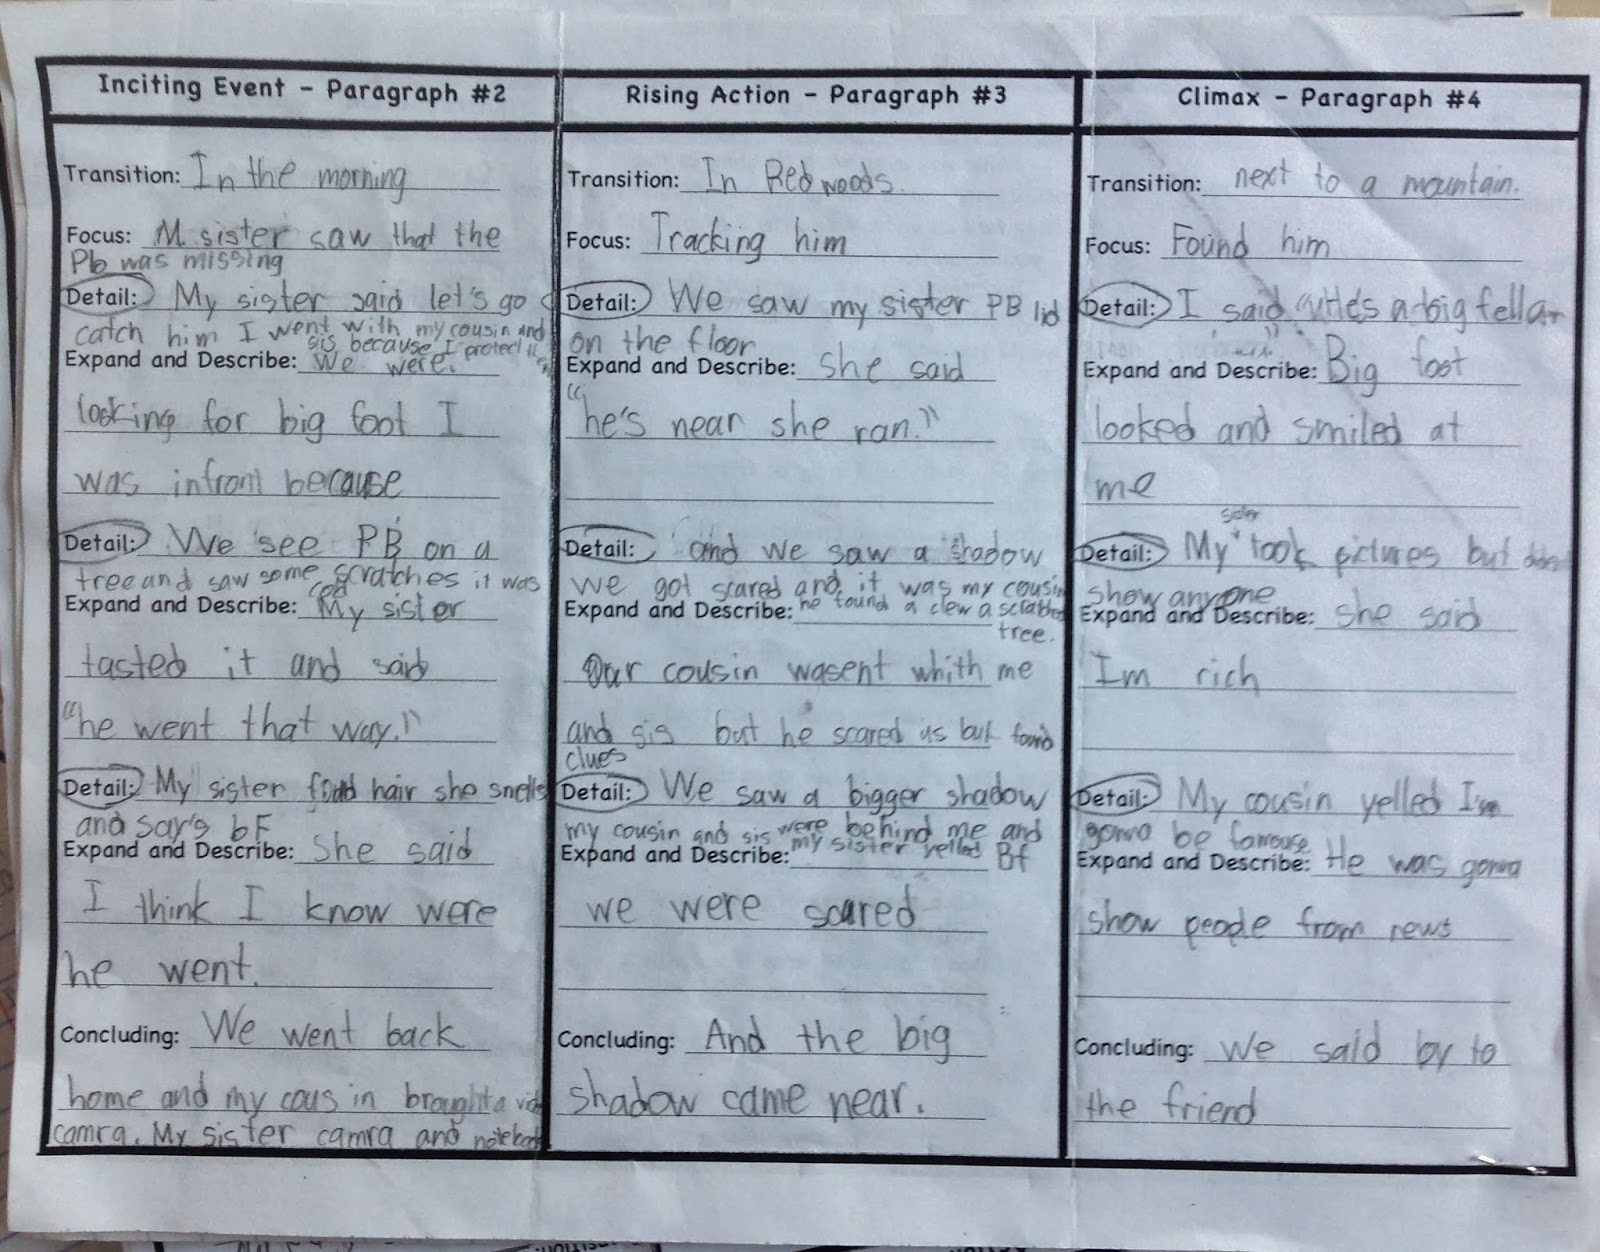 Inciting Event – Paragraph #2
Transition: In the morning
Focus: M sister saw that the
Pb was missing
Detail: My sister said let's go
catch him I went with my cousin and
sis because I protect
Expand and Describe: We were.
looking for big foot I
was infront because
Detail: We see PB on a
tree and saw some scratches it was
red
Expand and Describe: My sister
tasted it and said
"he went that way."
Detail: My sister found hair she smells
and say's bF
Expand and Describe: She said
I think I know were
he went.
Concluding: We went back
home and my cousin brought a
camra. My sister camra and notebook
Rising Action – Paragraph #3
Transition: In Redwoods.
Focus: Tracking him
Detail: We saw my sister PB lid
on the floor
Expand and Describe: She said
"he's near she ran."
Detail: and we saw a shadow
we got scared and it was my cousin
Expand and Describe: he found a clew a scratched
tree.
Our cousin wasent whith me
and sis but he scared us but found
clues
Detail: We saw a bigger shadow
my cousin and sis were behind me and
my sister yelled Bf
Expand and Describe:
we were scared
Concluding: And the big
shadow came near.
Climax – Paragraph #4
Transition: next to a mountain.
Focus: Found him
Detail: I said "He's a big fellar
Expand and Describe: Big foot
looked and smiled at
me
Detail: My sister took pictures but
show anyone
Expand and Describe: She said
Im rich
Detail: My cousin yelled I'm
gonna be famouse
Expand and Describe: He was gonna
show people from news
Concluding: We said by to
the friend